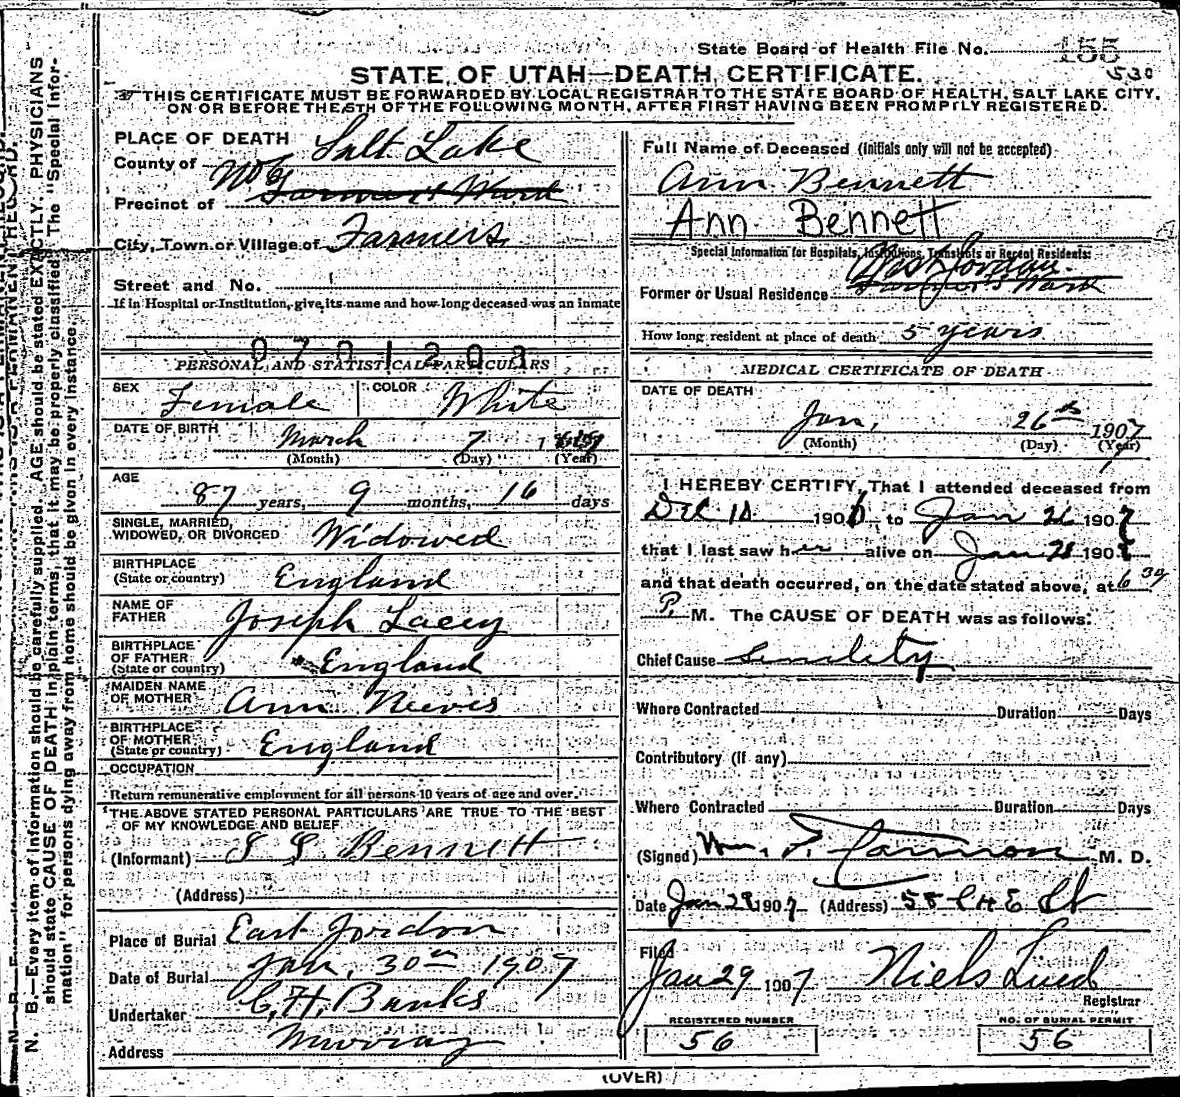 State Board of Health File No. 155
530
STATE OF UTAH—DEATH CERTIFICATE.
THIS CERTIFICATE MUST BE FORWARDED BY LOCAL REGISTRAR TO THE STATE BOARD OF HEALTH, SALT LAKE CITY,
ON OR BEFORE THE 5TH OF THE FOLLOWING MONTH, AFTER FIRST HAVING BEEN PROMPTLY REGISTERED.
N. B.—Every item of information should be carefully supplied. AGE should be stated EXACTLY. PHYSICIANS
should state CAUSE OF DEATH in plain terms, that it may be properly classified. The "Special Infor-
mation" for persons dying away from home should be given in every instance.
PLACE OF DEATH
County of Salt Lake
Precinct of Farmers Ward
City, Town or Village of Farmers
Street and No.
If in Hospital or Institution, give its name and how long deceased was an inmate
0701203
PERSONAL AND STATISTICAL PARTICULARS
SEX Female COLOR White
DATE OF BIRTH March 7 1
(Month) (Day) (Year)
AGE 87 years, 9 months, 16 days
SINGLE, MARRIED,
WIDOWED, OR DIVORCED Widowed
BIRTHPLACE
(State or country) England
NAME OF
FATHER Joseph Lacey
BIRTHPLACE
OF FATHER
(State or country) England
MAIDEN NAME
OF MOTHER Ann Neeves
BIRTHPLACE
OF MOTHER
(State or country) England
OCCUPATION
Return remunerative employment for all persons 10 years of age and over.
THE ABOVE STATED PERSONAL PARTICULARS ARE TRUE TO THE BEST
OF MY KNOWLEDGE AND BELIEF
(Informant) Bennett
(Address)
Place of Burial East Jordon
Date of Burial Jan, 30th 1907
Undertaker Banks
Address Murray
Full Name of Deceased (initials only will not be accepted)
Ann Bennett
Ann Bennett
Special Information for Hospitals, Institutions, Transients or Recent Residents:
West Jordan
Former or Usual Residence Farmers Ward
How long resident at place of death 5 years
MEDICAL CERTIFICATE OF DEATH
DATE OF DEATH
Jan, 26th 1907
(Month) (Day) (Year)
I HEREBY CERTIFY, That I attended deceased from
Dec 18 1906, to Jan 26 1907
that I last saw her alive on Jan 1907
and that death occurred, on the date stated above, at 6 30
P. M. The CAUSE OF DEATH was as follows:
Chief Cause senility
Where Contracted Duration Days
Contributory (if any)
Where Contracted Duration Days
(Signed) Wm. F. Cannon M. D.
Date Jan 28 1907 (Address) St
Filed
Jan 29 1907 Niels Lind
Registrar
REGISTERED NUMBER
56
NO. OF BURIAL PERMIT
56
(OVER)